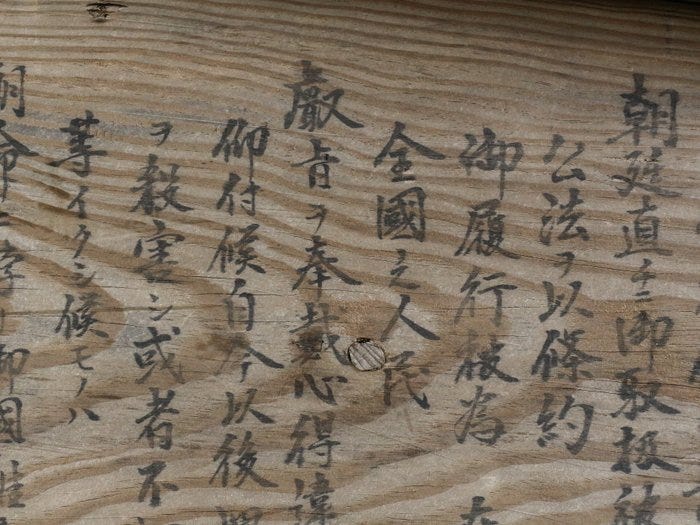 朝廷直チニ御取扱被
公法ヲ以條約
御履行被為
全國之人民
嚴旨ヲ奉戴心得違
仰付候自今以後
ヲ殺害シ或者不
等イタシ候モノハ
朝命ニ悖リ御國難